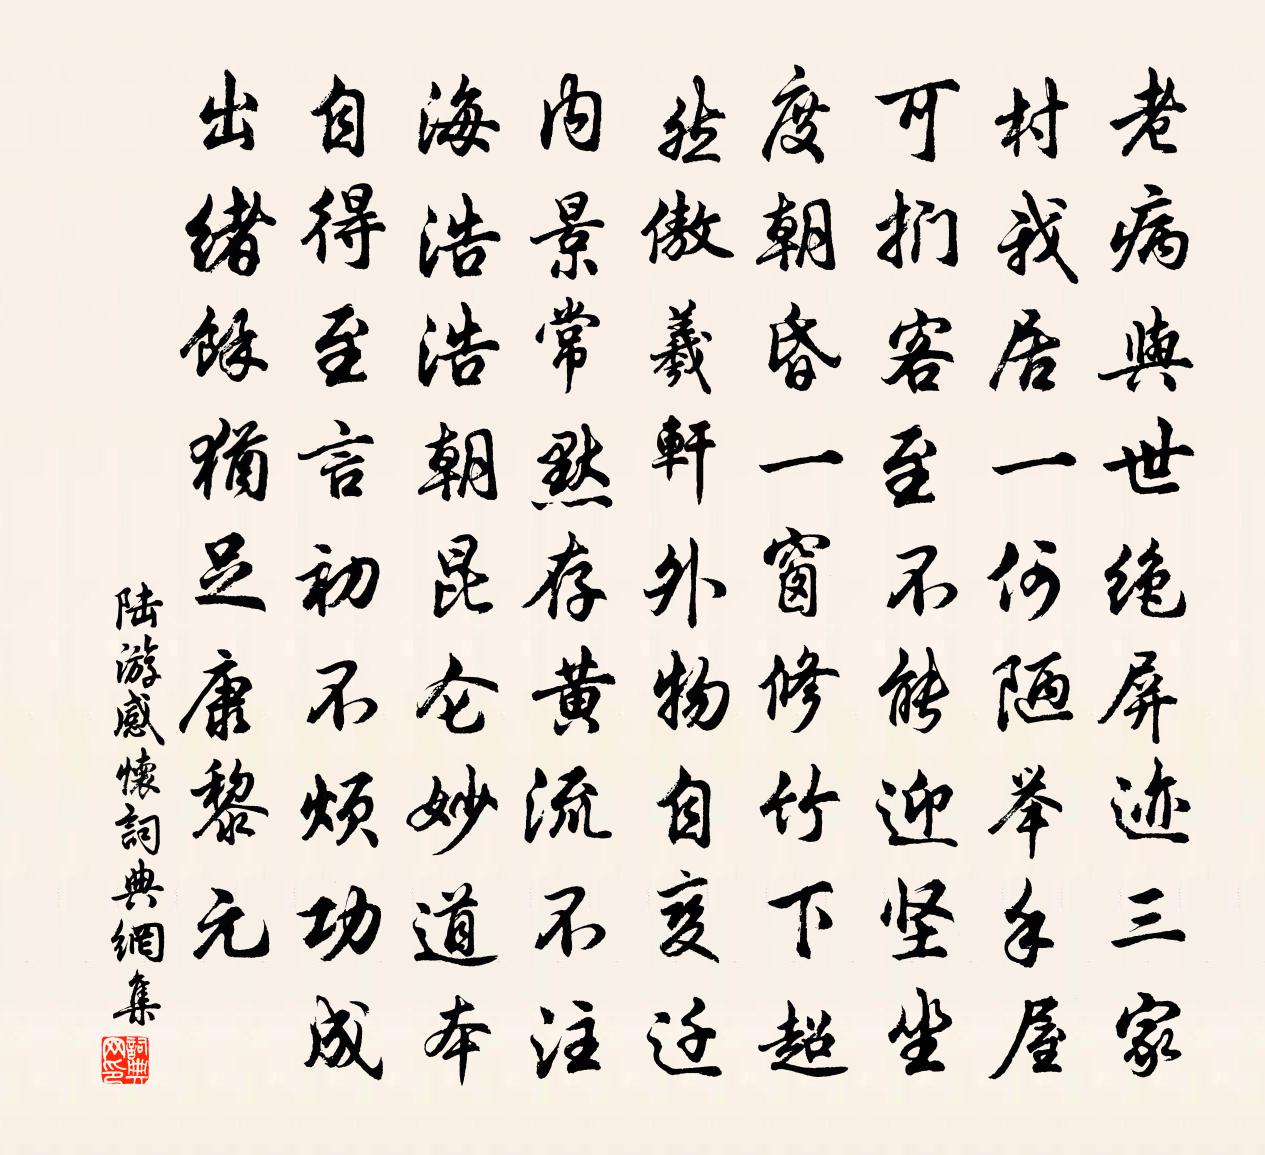 老病與世绝屏迹三家
村我居一何陋举手屋
可捫客至不能迎坚坐
度朝昏一窗修竹下超
然傲羲軒外物自变迁
内景常默存黄流不注
海浩浩朝昆仑妙道本
自得至言初不烦功成
出绪餘犹足康黎元
陆游感懷詞典網集
詞典网印